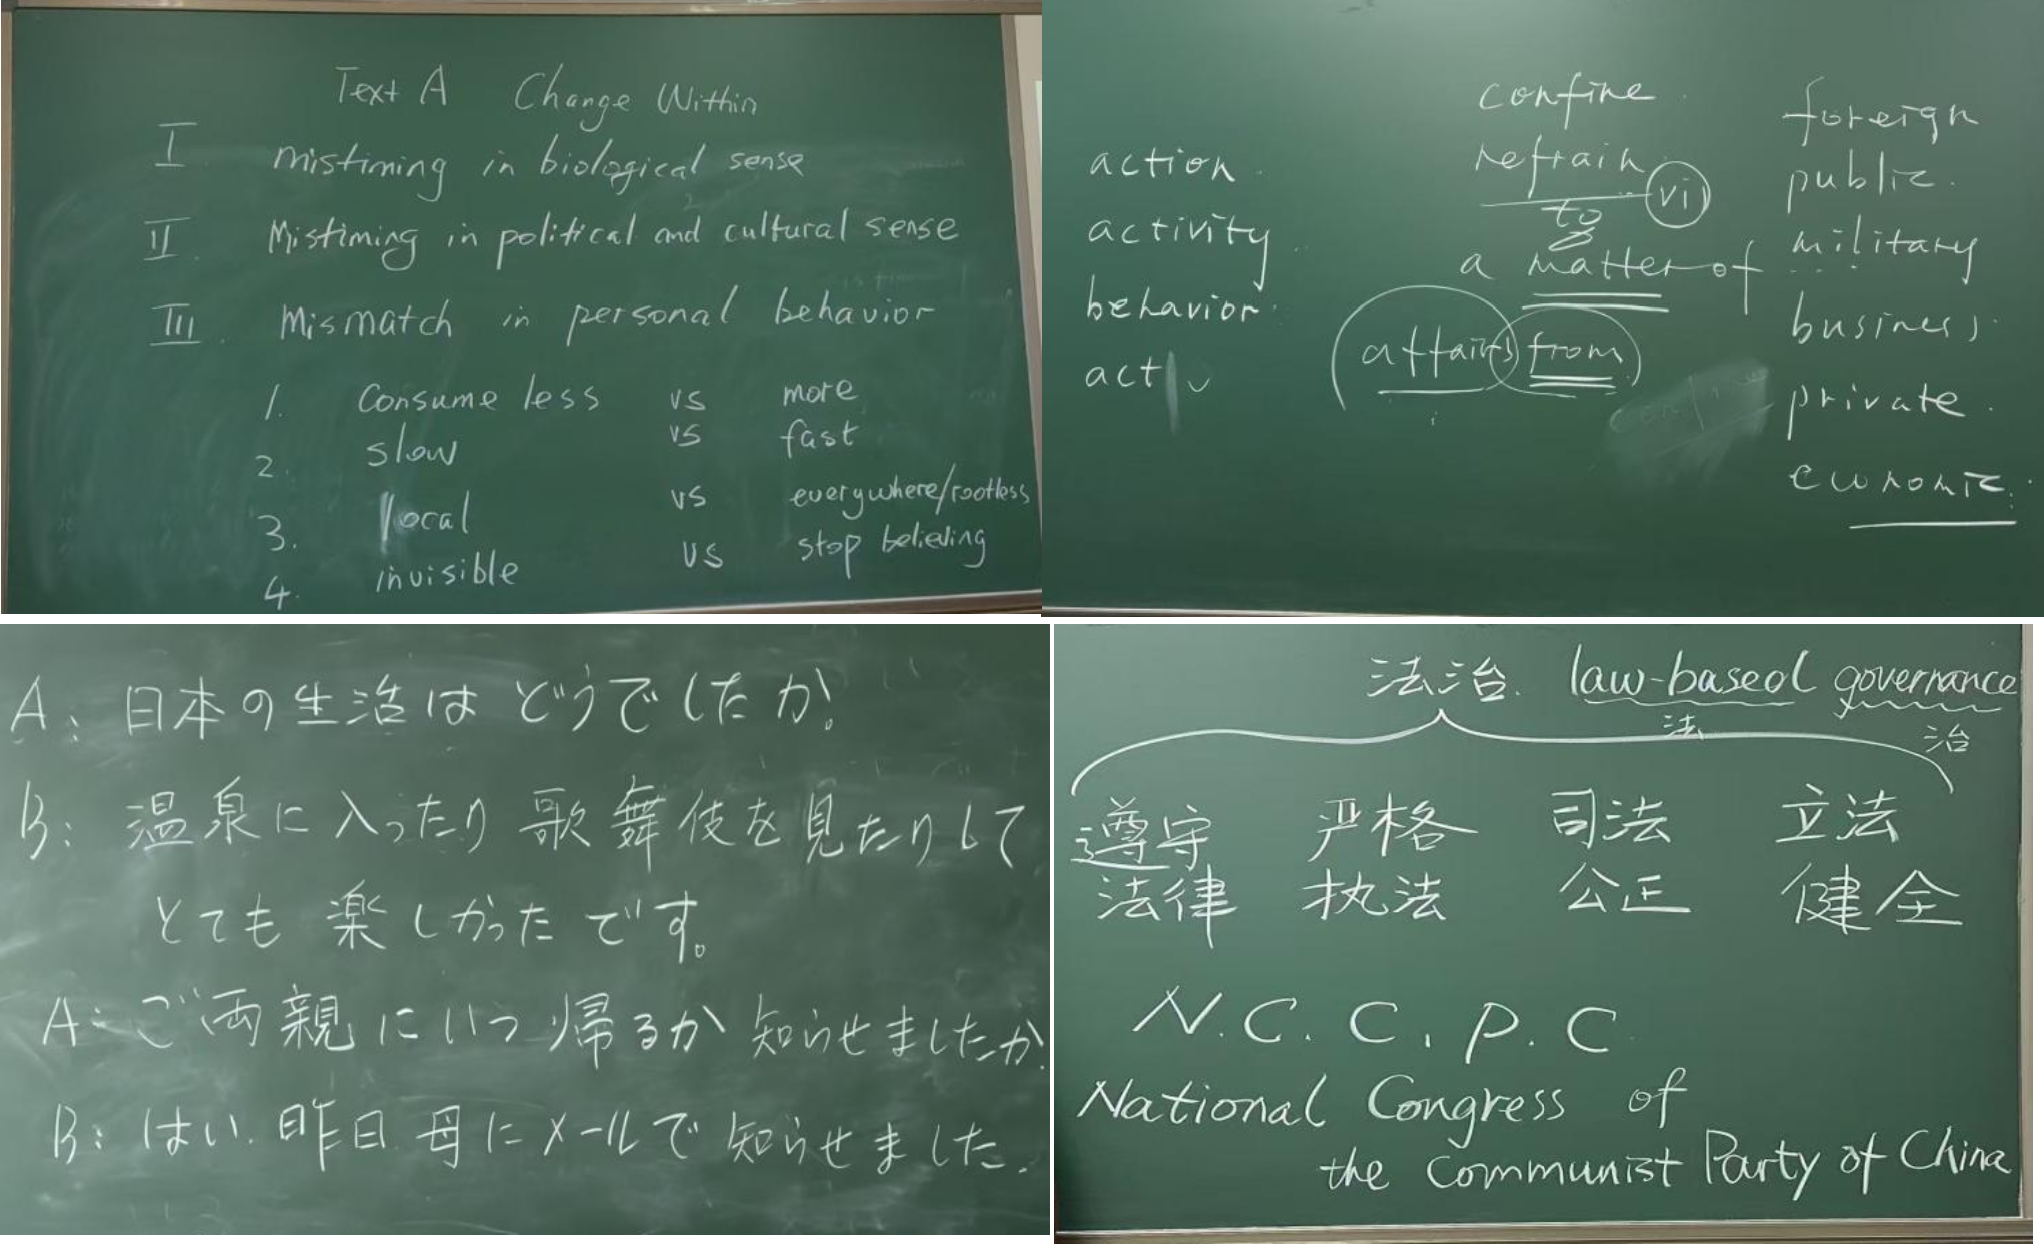 Text A Change Within
I. mistiming in biological sense
II. Mistiming in political and cultural sense
III. Mismatch in personal behavior
1. Consume less vs more
2. slow vs fast
3. local vs everywhere/rootless
4. invisible vs stop believing
action.
activity.
behavior.
act
confine.
refrain vi
to
a matter of
affairs from
foreign
public.
military
business.
private.
economic.
A: 日本の生活はどうでしたか。
B: 温泉に入ったり歌舞伎を見たりして
とても楽しかったです。
A: ご両親にいつ帰るか知らせましたか。
B: はい.昨日.母にメールで知らせました.
法治. law-based governance
法 治
遵守 严格 司法 立法
法律 执法 公正 健全
N.C.C.P.C.
National Congress of
the Communist Party of China